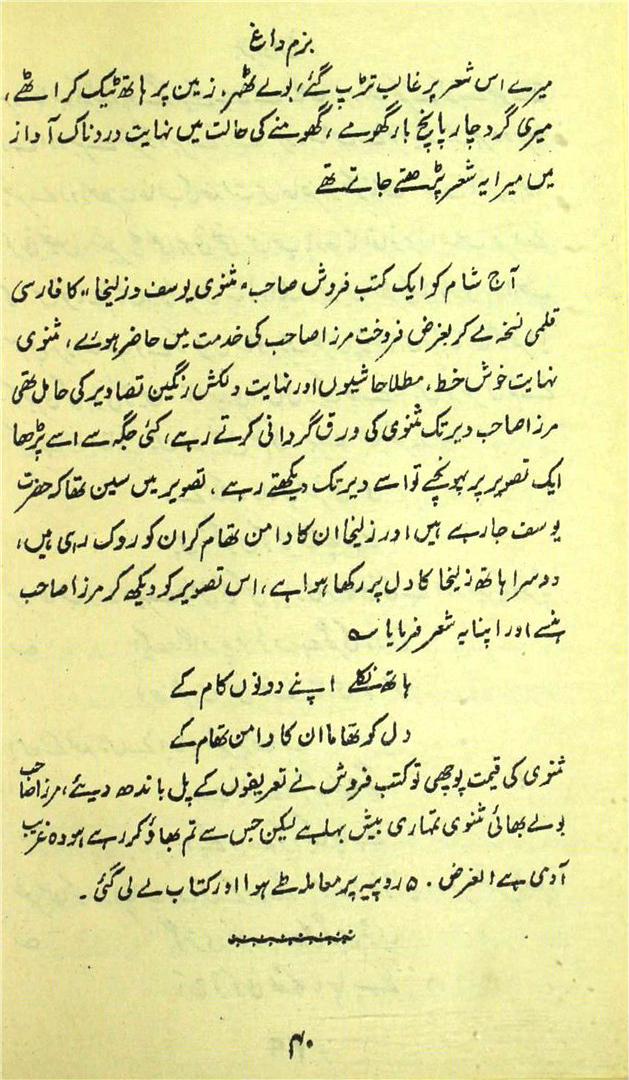 بزم داغ
میرے اس شعر پر غالب تڑپ گئے، بولے ٹھہر. زمین پر ہاتھ ٹیک کر اٹھے،
میری گرد چار پانچ بار گھومے، گھومنے کی حالت میں نہایت دردناک آواز
میں میرا یہ شعر پڑھتے جاتے تھے
آج شام کو ایک کتب فروش صاحب "مثنوی یوسف و زلیخا" کا فارسی
قلمی نسخہ لے کر بغرض فروخت مرزا صاحب کی خدمت میں حاضر ہوئے، مثنوی
نہایت خوش خط، مطلا حاشیوں اور نہایت دلکش رنگین تصاویر کی حامل تھی
مرزا صاحب دیر تک مثنوی کی ورق گردانی کرتے رہے، کئی جگہ سے اسے پڑھا
ایک تصویر پر پہونچے تو اسے دیر تک دیکھتے رہے، تصویر میں سین تھا کہ حضرت
یوسف جا رہے ہیں اور زلیخا ان کا دامن تھام کر ان کو روک رہی ہیں،
دوسرا ہاتھ زلیخا کا دل پر رکھا ہوا ہے، اس تصویر کو دیکھ کر مرزا صاحب
ہنسے اور اپنا یہ شعر فرمایا ؎
ہاتھ نکلے اپنے دونوں کام کے
دل کو تھاما ان کا دامن تھام کے
مثنوی کی قیمت پوچھی تو کتب فروش نے تعریفوں کے پل باندھ دیئے، مرزا صاحب
بولے بھائی مثنوی تمہاری بیش بہا ہے لیکن جس سے تم بھاؤ کر رہے ہو وہ غریب
آدمی ہے الغرض ۵۰ روپیہ پر معاملہ طے ہوا اور کتاب لے لی گئی۔
۴۰